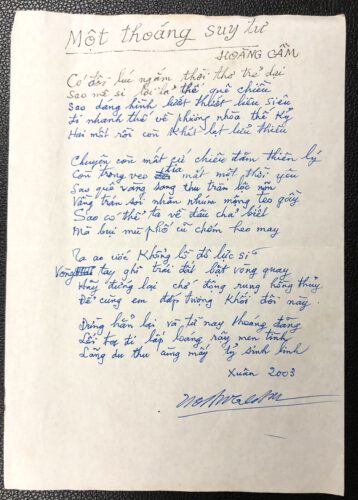 Một thoáng suy tư
HOÀNG CẦM
Có đôi lúc ngắm thời thơ trẻ dại
Sao mê si lại là thế quê chiều
Sao dáng hình biết thuyết liêu siêu
Đi nhanh thế về phía nhòa thế kỷ
Hai mắt rồi còn khát lạt liêu thiêu
Chuyện con mắt cứ chiều đắm thiên lý
Còn trong veo đưa mắt một thời yêu
Sao quá vầng sáng thu trần lộc nõn
Vầng trán sói nhăn nhúm mộng teo gầy
Sao có thế ta về đâu chả biết
Mà bụi mù phố cũ chớm heo may
Ta ao ước Không lồ đô lực sĩ
Vòng tay ghì trái đất bật vòng quay
Hãy đứng lại chớ động rung hồng thủy
Để cùng em đắp tượng khối đời này
Đứng hẳn lại và từ nay thoáng đãng
Lối ta đi lấp lang nẩy men tình
Lãng du thu ang mấy tỷ sinh linh
Xuân 2003